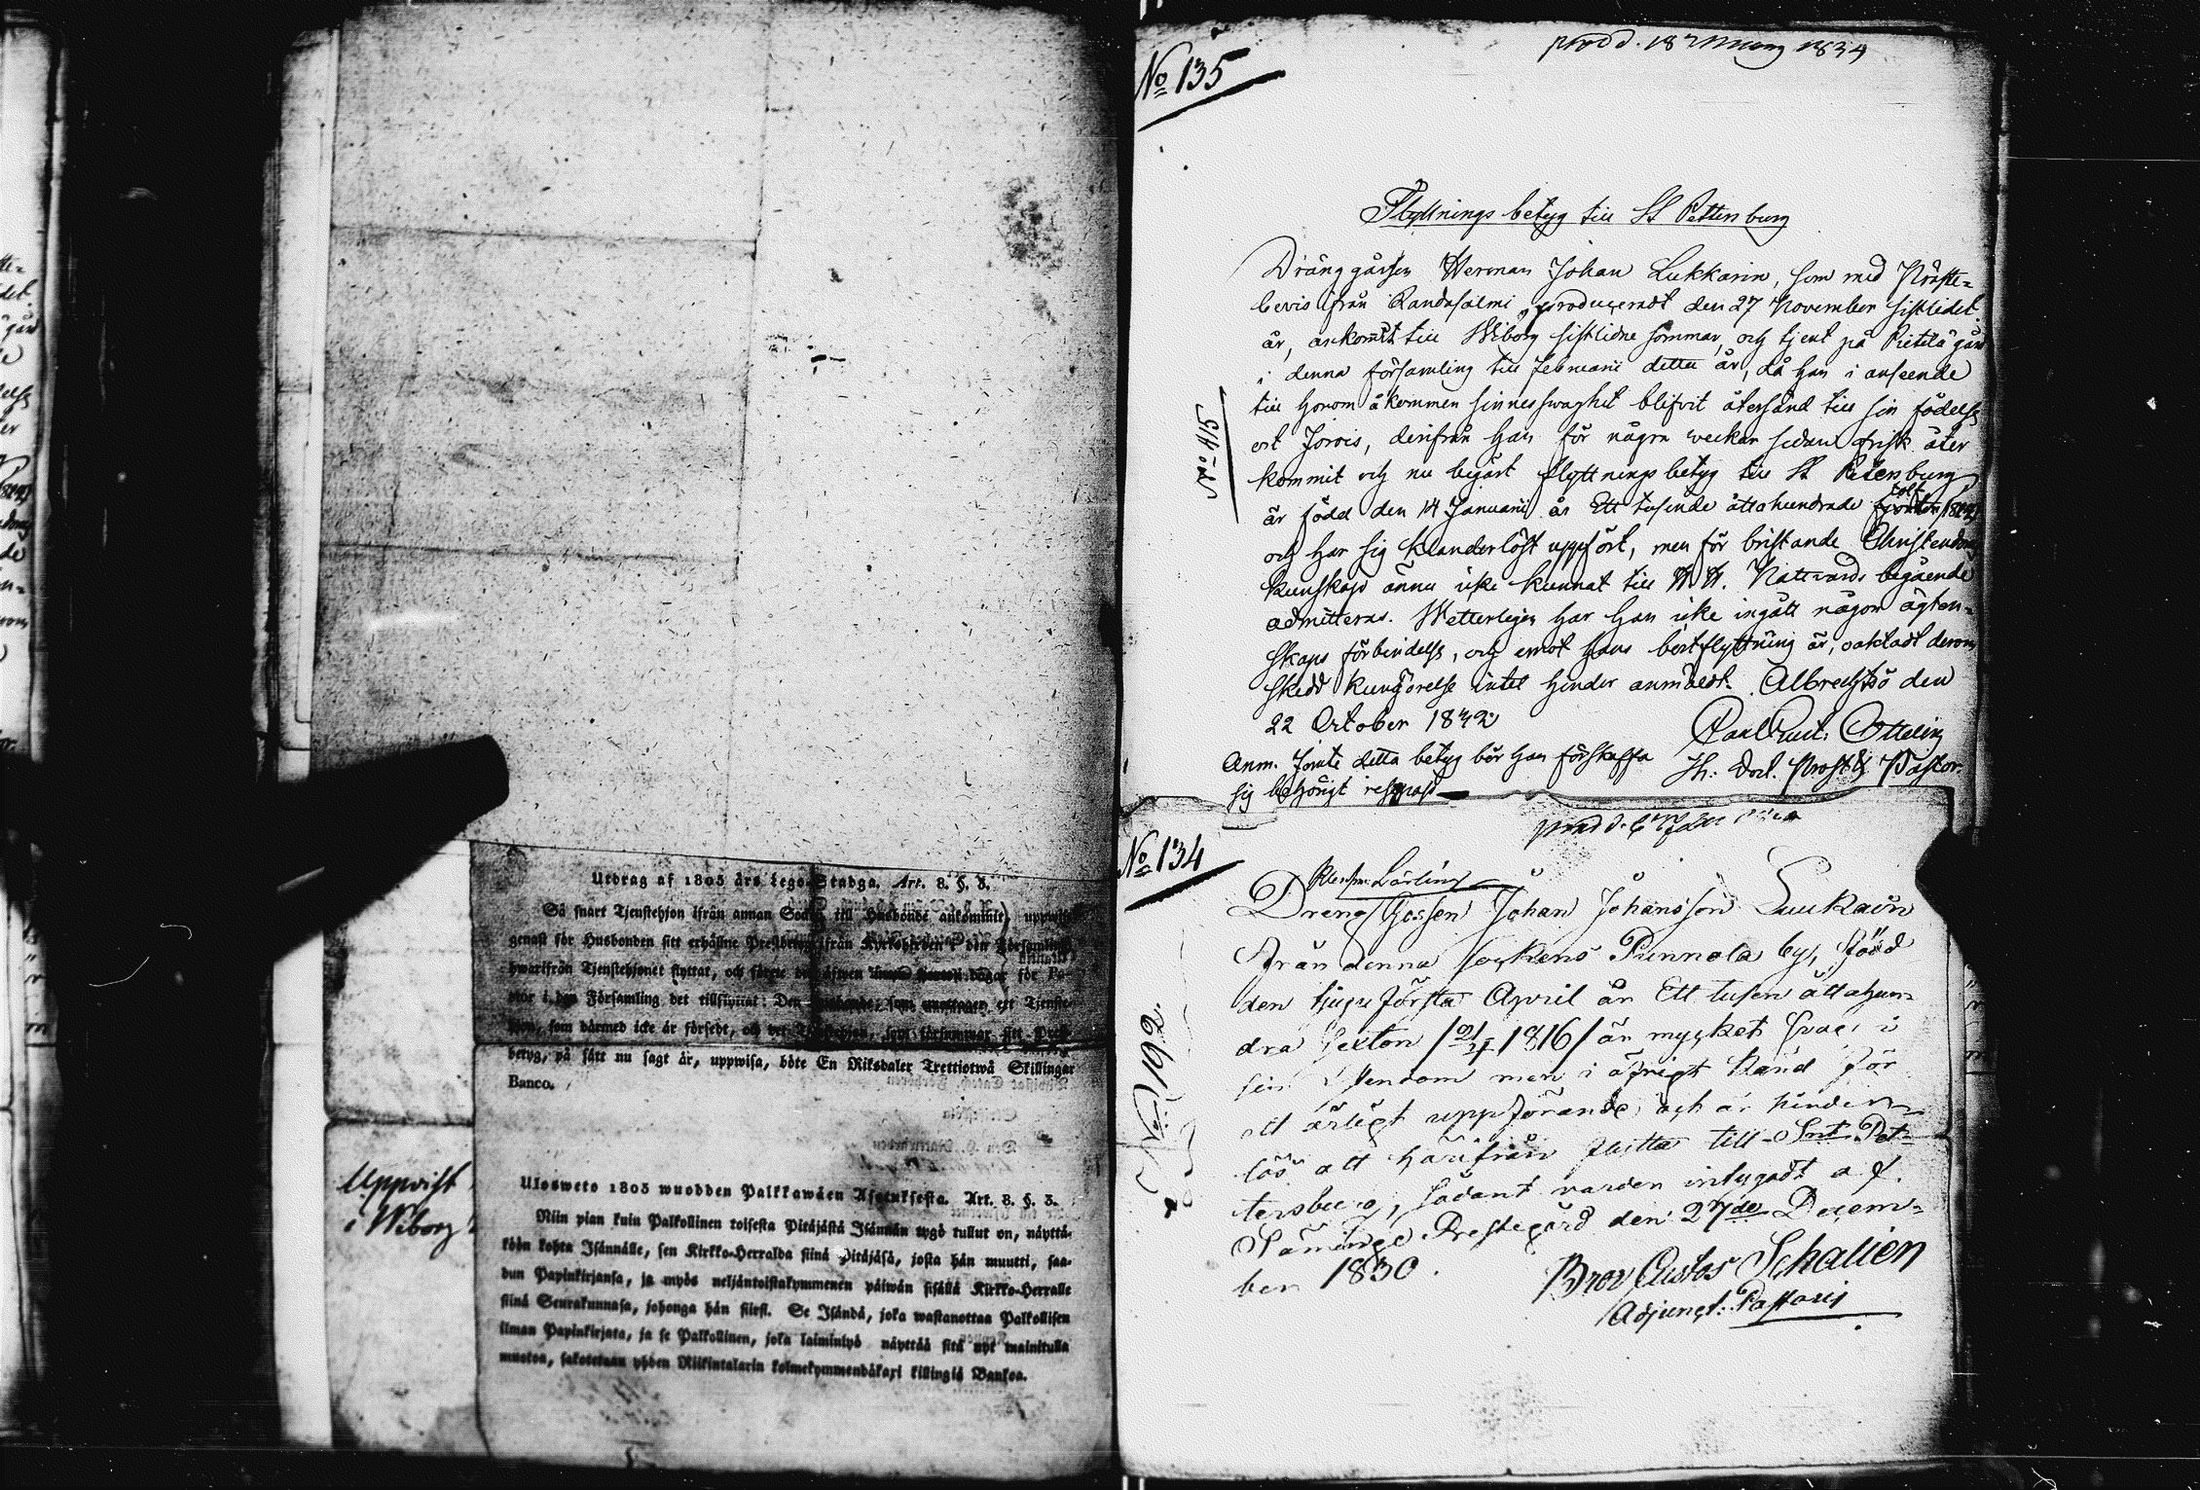 Utdrag af 1805 års Lego-Stadga. Art. 8. §. 3.
Så snart Tjenstehjon ifrån annan Socken till Husbonde ankommit, uppwise
genast för Husbonden sitt erhållne Prestbetyg ifrån Kyrkoherden i den Församling
hwarifrån Tjenstehjonet flyttat, och för Pa-
stor i den Församling det tillflyttat: Den Husbonde, som emottager ett Tjenste-
hjon, som därmed icke är försedt, och det Tjenstehjon, som försummar sitt Prest-
betyg, på sätt nu sagt är, uppwisa, böte En Riksdaler Trettiotwå Skillingar
Banco.
Ulosweto 1805 wuodden Palkkawäen Asetuksesta. Art. 8. §. 3.
Niin pian kuin Palkollinen toisesta Pitäjästä Isännän tygö tullut on, näyttä-
köön kohta Isännälle, sen Kirkko-Herralda siinä Pitäjäsä, josta hän muutti, saa-
dun Papinkirjansa, ja myös neljäntoistakymmenen päiwän sisällä Kirkko-Herralle
siinä Seurakunnasa, johonga hän siirsi. Se Isändä, joka wastanottaa Palkollisen
ilman Papinkirjata, ja se Palkollinen, joka laiminlyö näyttää sitä nyt mainitulla
muotoa, sakotetaan yhden Riikintalarin kolmekymmendäkaxi killingiä Bankoa.
Uppvist
i Wiborg
No 135
prod d. 18 1834
Flyttnings betyg till St Pettersburg
Dränggåssen Herman Johan Lukkarin, som med Präste-
bevis från Randasalmi, produceradt den 27 November sistledet
år, ankommit till Wiborg sistlidne sommar, och tjent på Pietilä gård
i denna församling till Februarii detta år, då han i anseende
till honom åkommen sinnesswaghet blifvit återsänd till sin födelse
ort Jorois, derifrån han för några veckor sedan frisk åter
kommit och nu begärt flyttnings betyg till St Petersburg
är född den 14 Januarii år Ett tusende åttahundrade tolf
och har sig klanderlöst uppfört, men för bristande Christendoms
kunskap ännu icke kunnat till H. H. Nattvards begående
admitteras. Wetterligen har han icke ingått någon ägten-
skaps förbindelse, och emot hans bortflyttning är, oaktadt derom
skedd kungörelse intet hinder anmäldt. Albrechtsö den
22 October 1832
Carl Gust: Ottelin
Th: Doct. Prost & Pastor.
Anm. Jemte detta betyg bör han förskaffa
sig behörigt respass
No 415
No 134
prod d. 6
Lärling
Dreng Gossen Johan Johansson Luukain
från denna sockens Punnola by, född
den tjugu första April år Ett tusen åttahun-
dra sexton /21/4 1816/ är mycket svag i
sin men i öfrigt känd för
ett ärligt uppförande, och är hinders-
lös att härifrån flytta till Snt Pet-
tersburg, sådant varder intygadt af.
Säminge Prestegård den 27de Decem-
ber 1830.
Bror Gustaf Schalien
Adjunct: Pastoris
No 192